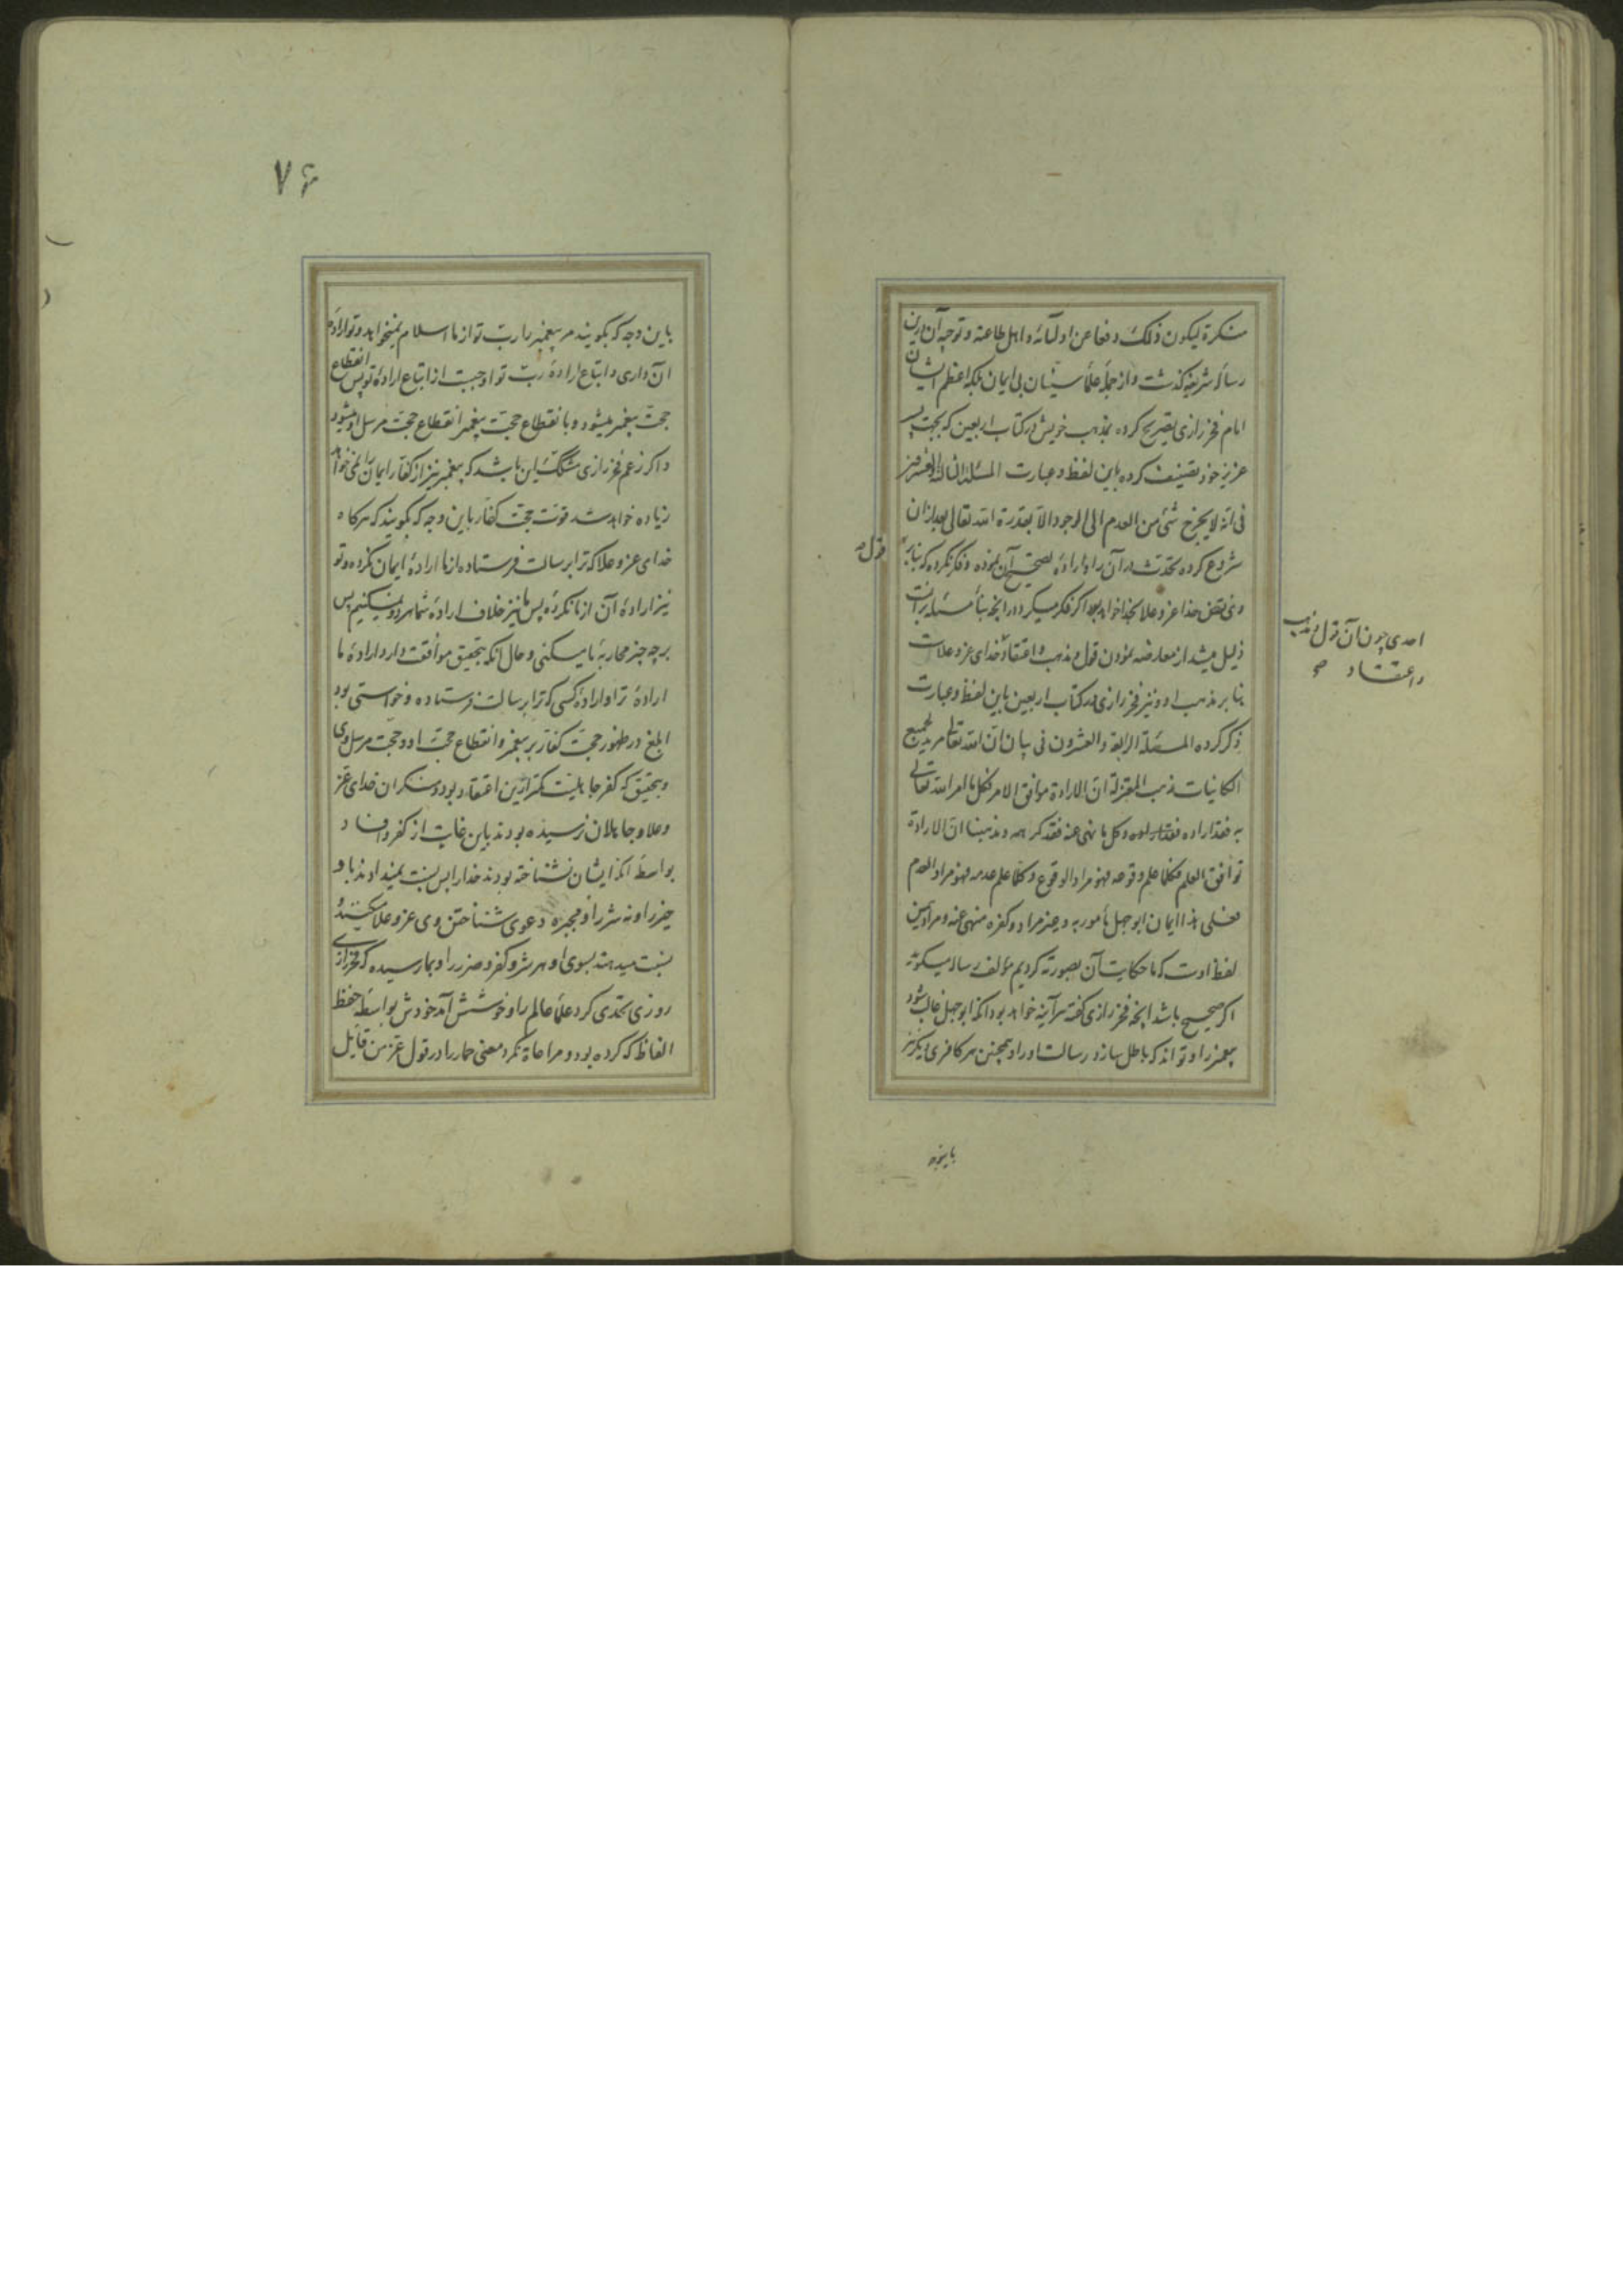 منکرة لیکون ذلک دفعا عن اولیائه و اهل طاعته و توجیه آن درین
رساله شریفه گذشت و از جمله علماء سنیان بی ایمان بلکه اعظم ایشان
امام فخر رازی تصریح کرده بمذهب خویش در کتاب اربعین که بجهت پسر
عزیز خود تصنیف کرده باین لفظ و عبارت المسئلة الثالثة و العشرون
فی انه لا یخرج شئ من العدم الی الوجود الا بقدرة الله تعالی بعد از آن
شروع کرده
و نقض خدا عز و علا
ذلیل میشد از معارضه نمودن قول و مذهب و اعتقاد خدای عز و علاست
بنا بر مذهب او و نیز فخر رازی در کتاب اربعین باین لفظ و عبارت
ذکر کرده المسئلة الرابعة و العشرون فی بیان ان الله تعالی مرید لجمیع
الکائنات مذهب المعتزلة ان الارادة موافق الامر فکل ما امر الله تعالی
به فقد اراده و کل ما نهی عنه فقد کرهه و مذهبنا ان الارادة
توافق العلم فکلما علم وقوعه فهو مراد الوقوع و کلما علم عدمه فهو مراد العدم
فعلی هذا ایمان ابوجهل مأمور به و غیر مراد و کفره منهی عنه و مراد این
لفظ اوست که ما حکایت آن بصورته کردیم مؤلف رساله میگوید
اگر صحیح باشد آنچه فخر رازی گفته هرآینه خواهد بود آنکه ابوجهل غالب شود
پیغمبر را و تواند که باطل سازد رسالت او را و همچنین هر کافری دیگر نیز
قول
احدی چون آن قول و مذهب
و اعتقاد صح
باینوجه
۷۶
باین وجه که بگویند مر پیغمبر را رب تو از ما اسلام نمیخواهد و تو اراده
آن داری و اتباع اراده رب تو اوجبست از اتباع اراده تو پس انقطاع
حجت پیغمبر میشود و با نقطاع حجت پیغمبر انقطاع حجت مرسل او میشود
و اگر زعم فخر رازی این باشد که پیغمبر نیز از کفار ایمان را نمی خواهد
زیاده خواهد شد قوت حجت کفار باین وجه که بگویند که هرگاه
خدای عز و علا که ترا برسالت فرستاده از ما اراده ایمان نکرده و تو
نیز اراده آن از ما نکرده پس ما نیز خلاف اراده شما هر دو نمیکنیم پس
بر چه چیز محاربه با ما میکنی و حال آنکه بتحقیق موافقت دارد اراده ما
اراده ترا و اراده کسی که ترا برسالت فرستاده و خواستی بود
ابلغ در ظهور حجت کفار بر پیغمبر و انقطاع حجت او و حجت مرسل وی
و بتحقیق که کفر جاهلیت کمتر ازین اعتقاد بود و منکران خدای عز
و علا و جاهلان نرسیده بودند باین غایت از کفر و فساد
بواسطه آنکه ایشان نشناخته بودند خدا را پس نسبت نمیدادند باو
خیر را و نه شر را و مجبره دعوی شناختن وی عز و علا میکنند و
نسبت میدهند بسوی او هر شر و کفر و ضرر را و بما رسیده که فخر رازی
روزی تحدی کرد علماء عالم را و خوشش آمد خودش بواسطه حفظ
الفاظ که کرده بود و مراعاة نکرد معنی حمار را در قول عز من قایل